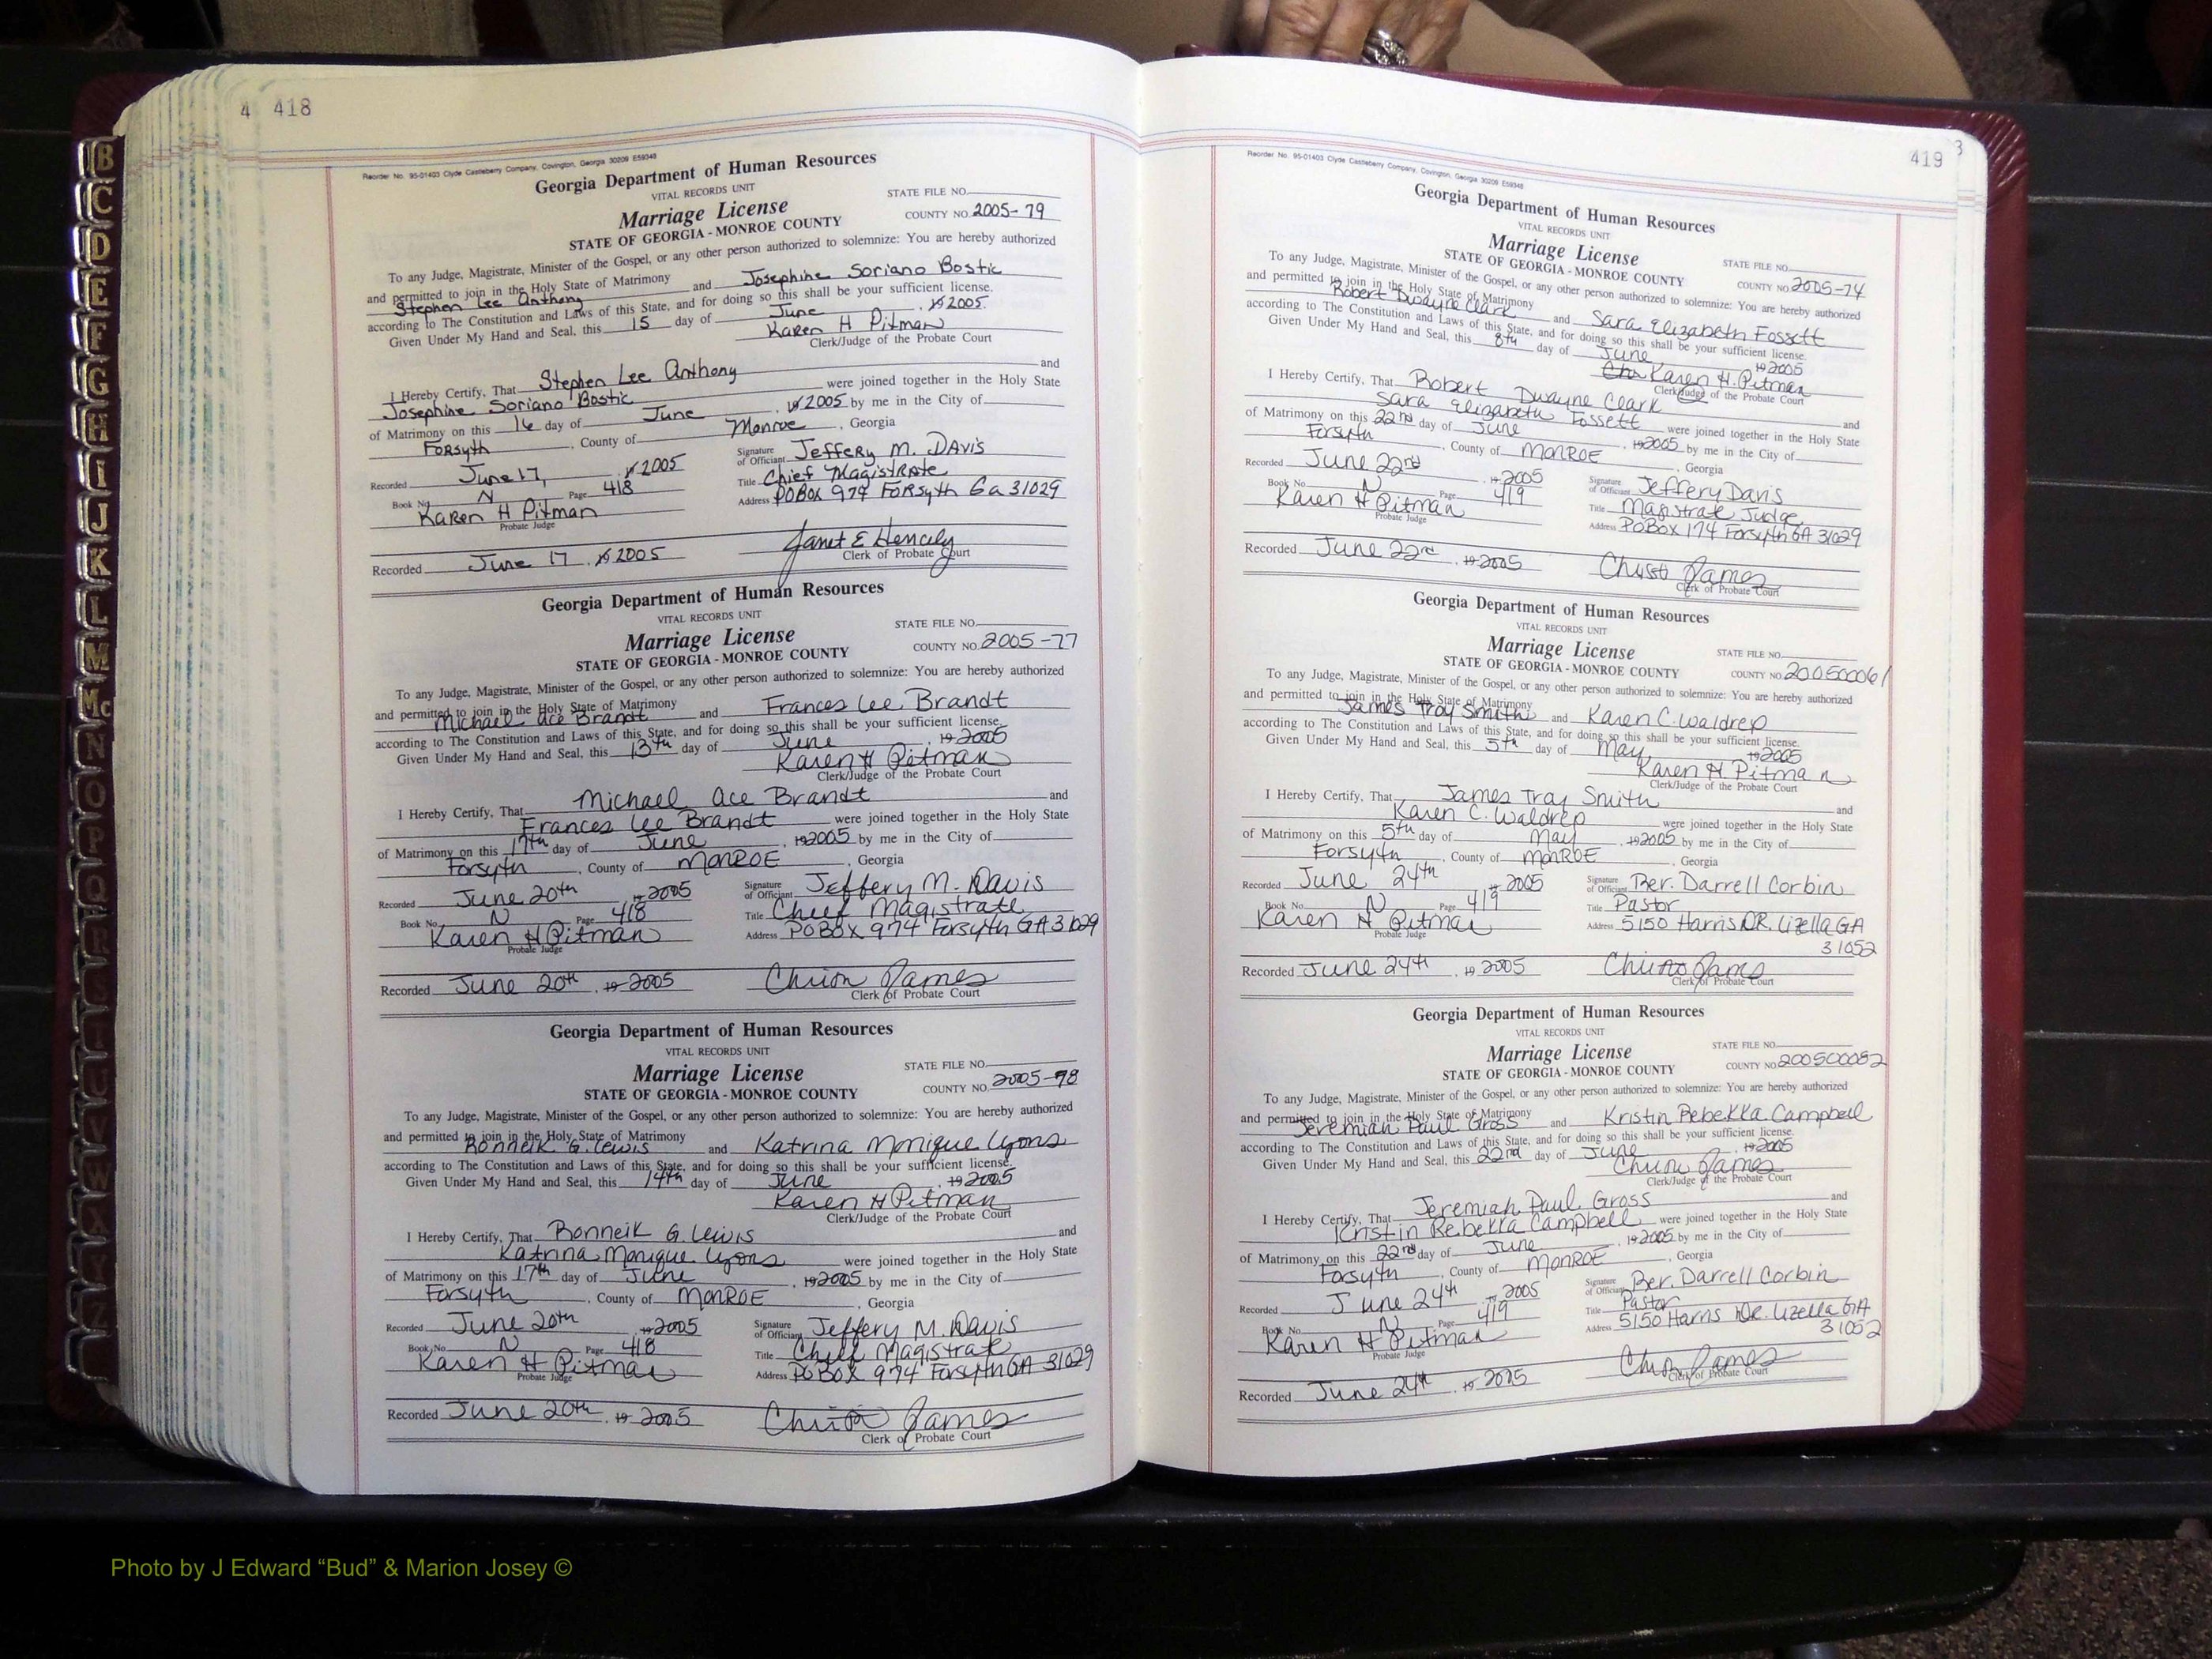 4 418
Reorder No. 95-01403 Clyde Castleberry Company, Covington, Georgia 30209 E59348
Georgia Department of Human Resources
VITAL RECORDS UNIT
STATE FILE NO.
Marriage License
COUNTY NO. 2005-79
STATE OF GEORGIA - MONROE COUNTY
To any Judge, Magistrate, Minister of the Gospel, or any other person authorized to solemnize: You are hereby authorized
and permitted to join in the Holy State of Matrimony
Stephen Lee Anthony and Josephine Soriano Bostic
according to The Constitution and Laws of this State, and for doing so this shall be your sufficient license.
Given Under My Hand and Seal, this 15 day of June, 19 2005.
Karen H Pitman
Clerk/Judge of the Probate Court
I Hereby Certify, That Stephen Lee Anthony and
Josephine Soriano Bostic were joined together in the Holy State
of Matrimony on this 16 day of June, 19 2005 by me in the City of
Forsyth, County of Monroe, Georgia
Recorded June 17, 19 2005
Signature of Officiant Jeffery M. Davis
Book No. N Page 418
Title Chief Magistrate
Karen H Pitman
Address PO Box 974 Forsyth Ga 31029
Probate Judge
Recorded June 17, 19 2005
Janet E Hencely
Clerk of Probate Court
Georgia Department of Human Resources
VITAL RECORDS UNIT
STATE FILE NO.
Marriage License
COUNTY NO. 2005-77
STATE OF GEORGIA - MONROE COUNTY
To any Judge, Magistrate, Minister of the Gospel, or any other person authorized to solemnize: You are hereby authorized
and permitted to join in the Holy State of Matrimony
Michael Ace Brandt and Frances Lee Brandt
according to The Constitution and Laws of this State, and for doing so this shall be your sufficient license.
Given Under My Hand and Seal, this 13th day of June, 19 2005
Karen H Pitman
Clerk/Judge of the Probate Court
I Hereby Certify, That Michael Ace Brandt and
Frances Lee Brandt were joined together in the Holy State
of Matrimony on this 17th day of June, 19 2005 by me in the City of
Forsyth, County of MONROE, Georgia
Recorded June 20th 19 2005
Signature of Officiant Jeffery M. Davis
Book No. N Page 418
Title Chief Magistrate
Karen H Pitman
Address PO Box 974 Forsyth GA 31029
Probate Judge
Recorded June 20th, 19 2005
James
Clerk of Probate Court
Georgia Department of Human Resources
VITAL RECORDS UNIT
STATE FILE NO.
Marriage License
COUNTY NO. 2005-78
STATE OF GEORGIA - MONROE COUNTY
To any Judge, Magistrate, Minister of the Gospel, or any other person authorized to solemnize: You are hereby authorized
and permitted to join in the Holy State of Matrimony
G. Lewis and Katrina Monique Lyons
according to The Constitution and Laws of this State, and for doing so this shall be your sufficient license.
Given Under My Hand and Seal, this 14th day of June, 19 2005
Karen H Pitman
Clerk/Judge of the Probate Court
I Hereby Certify, That G. Lewis and
Katrina Monique Lyons were joined together in the Holy State
of Matrimony on this 17th day of June, 19 2005 by me in the City of
Forsyth, County of MONROE, Georgia
Recorded June 20th 19 2005
Signature of Officiant Jeffery M. Davis
Book No. N Page 418
Title Chief Magistrate
Karen H Pitman
Address PO Box 974 Forsyth GA 31029
Probate Judge
Recorded June 20th, 19 2005
James
Clerk of Probate Court
419
Reorder No. 95-01403 Clyde Castleberry Company, Covington, Georgia 30209 E59348
Georgia Department of Human Resources
VITAL RECORDS UNIT
Marriage License
STATE FILE NO.
STATE OF GEORGIA - MONROE COUNTY
COUNTY NO. 2005-74
To any Judge, Magistrate, Minister of the Gospel, or any other person authorized to solemnize: You are hereby authorized
and permitted to join in the Holy State of Matrimony
Robert Dwayne Clark and Sara Elizabeth Fossett
according to The Constitution and Laws of this State, and for doing so this shall be your sufficient license.
Given Under My Hand and Seal, this 8th day of June 19 2005
Karen H. Pitman
Clerk/Judge of the Probate Court
I Hereby Certify, That Robert Dwayne Clark and
Sara Elizabeth Fossett were joined together in the Holy State
of Matrimony on this 22nd day of June, 19 2005 by me in the City of
Forsyth, County of MONROE, Georgia
Recorded June 22nd 19 2005
Signature of Officiant Jeffery Davis
Book No. N Page 419
Title Magistrate Judge
Karen H Pitman
Address PO Box 174 Forsyth GA 31029
Probate Judge
Recorded June 22nd, 19 2005
Christi James
Clerk of Probate Court
Georgia Department of Human Resources
VITAL RECORDS UNIT
Marriage License
STATE FILE NO.
STATE OF GEORGIA - MONROE COUNTY
COUNTY NO. 200500061
To any Judge, Magistrate, Minister of the Gospel, or any other person authorized to solemnize: You are hereby authorized
and permitted to join in the Holy State of Matrimony
James Troy Smith and Karen C. Waldrep
according to The Constitution and Laws of this State, and for doing so this shall be your sufficient license.
Given Under My Hand and Seal, this 5th day of May, 19 2005
Karen H. Pitman
Clerk/Judge of the Probate Court
I Hereby Certify, That James Troy Smith and
Karen C. Waldrep were joined together in the Holy State
of Matrimony on this 5th day of May, 19 2005 by me in the City of
Forsyth, County of MONROE, Georgia
Recorded June 24th 19 2005
Signature of Officiant Rev. Darrell Corbin
Book No. N Page 419
Title Pastor
Karen H Pitman
Address 5150 Harris DR. Lizella GA
31052
Probate Judge
Recorded June 24th, 19 2005
James
Clerk of Probate Court
Georgia Department of Human Resources
VITAL RECORDS UNIT
Marriage License
STATE FILE NO.
STATE OF GEORGIA - MONROE COUNTY
COUNTY NO. 200500082
To any Judge, Magistrate, Minister of the Gospel, or any other person authorized to solemnize: You are hereby authorized
and permitted to join in the Holy State of Matrimony
Jeremiah Paul Gross and Kristin Rebekka Campbell
according to The Constitution and Laws of this State, and for doing so this shall be your sufficient license.
Given Under My Hand and Seal, this 22nd day of June, 19 2005
James
Clerk/Judge of the Probate Court
I Hereby Certify, That Jeremiah Paul Gross and
Kristin Rebekka Campbell were joined together in the Holy State
of Matrimony on this 22nd day of June, 19 2005 by me in the City of
Forsyth, County of MONROE, Georgia
Recorded June 24th 19 2005
Signature of Officiant Rev. Darrell Corbin
Book No. N Page 419
Title Pastor
Karen H Pitman
Address 5150 Harris Dr. Lizella GA
31052
Probate Judge
Recorded June 24th, 19 2005
James
Clerk of Probate Court
B
C
D
E
F
G
H
I
J
K
L
M
Mc
N
O
P
Q
R
S
W
X
Z
Photo by J Edward “Bud” & Marion Josey ©